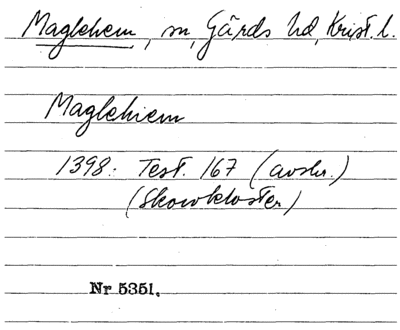 Maglehem, sn, Gärds hd, Krist. l.
Maglehiem
1398: Test. 167 (avskr.)
(Skowkloster)
Nr 5351.